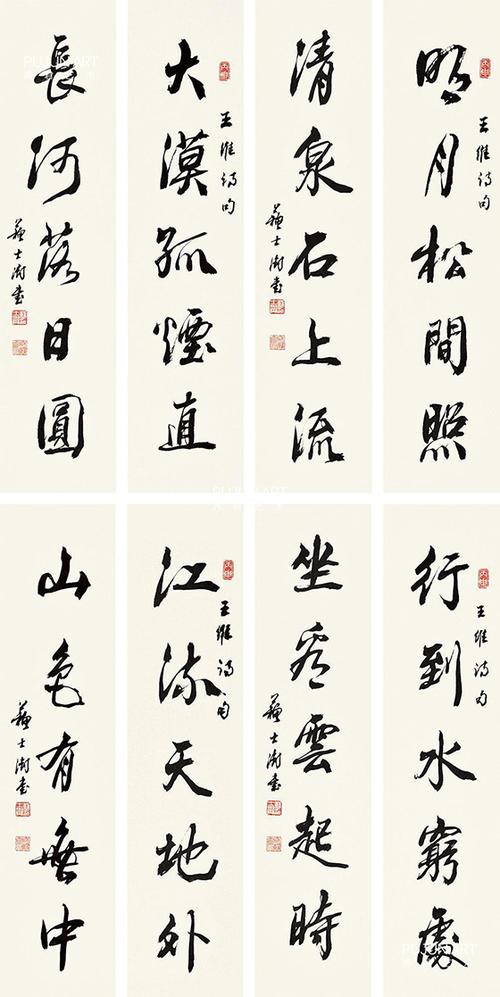 王維詩句
明月松間照
清泉石上流
蘇士澍書
王維詩句
大漠孤煙直
長河落日圓
蘇士澍書
王維詩句
行到水窮處
坐看雲起時
蘇士澍書
王維詩句
江流天地外
山色有無中
蘇士澍書